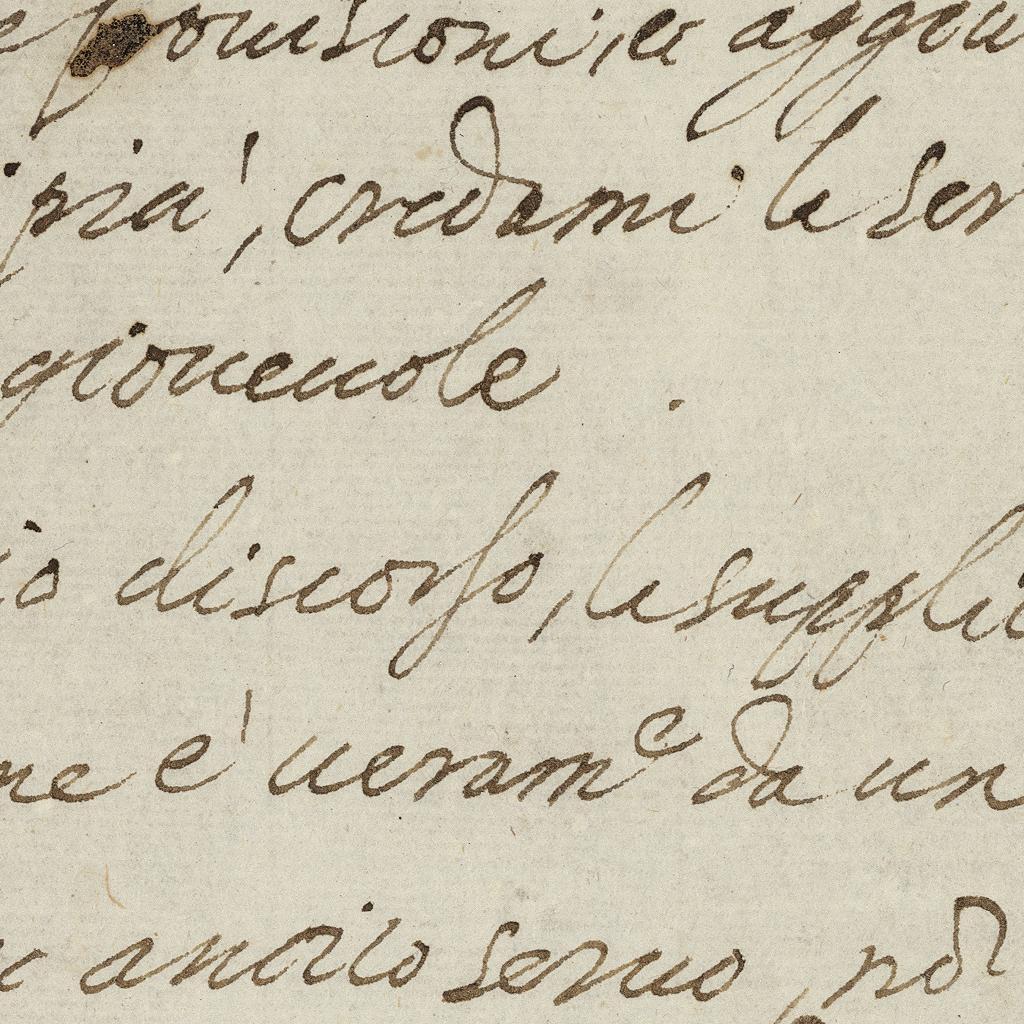 prouisioni, et aggiu
più, credami la ser
gioueuole.
io discorso, la supplic
me è ueram.e da un
antico seruo, nõ